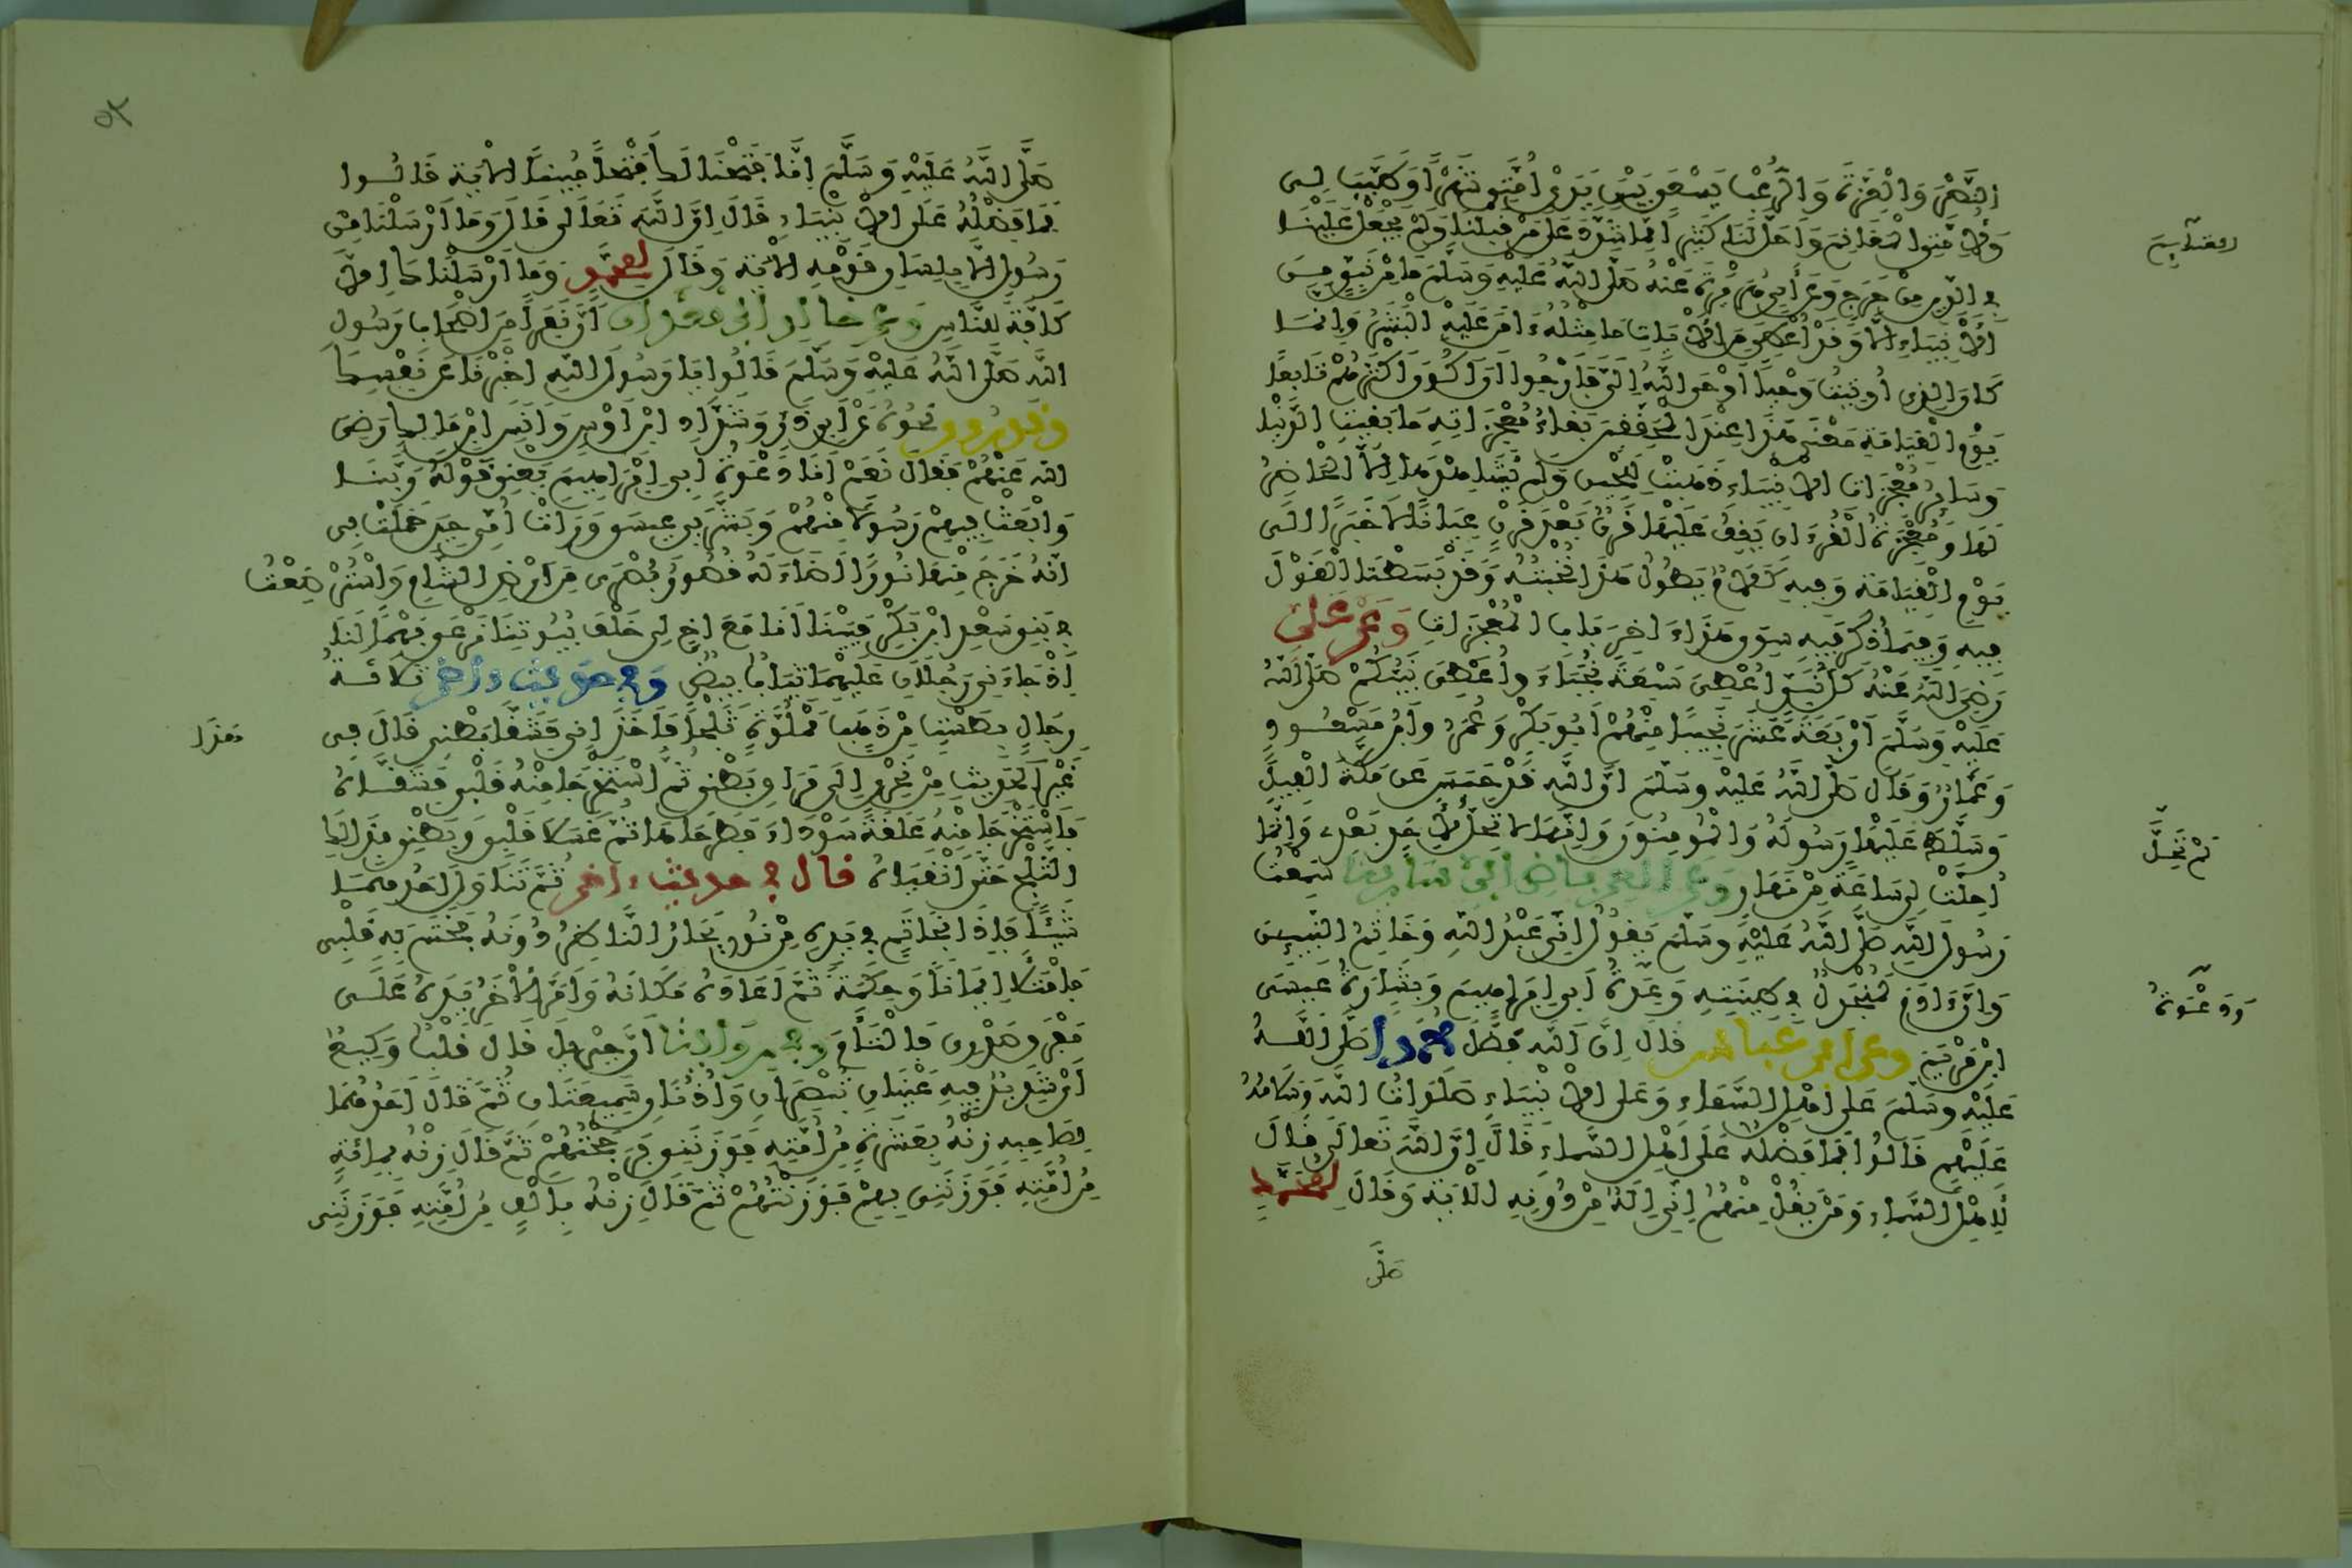 النَّصْرَ وَالْعِزَّةَ وَالرُّعْبُ يَسْعَى بَيْنَ يَدَيْ أُمَّتِي شَهْرًا وَطَيَّبَ لِي
وَلِأُمَّتِي الْمَغَانِمَ وَأَحَلَّ لَنَا كَثِيرًا مِمَّا شَدَّدَ عَلَى مَنْ قَبْلَنَا وَلَمْ يَجْعَلْ عَلَيْنَا
الغنايم
فِي الدِّينِ مِنْ حَرَجٍ وَعَنْ أَبِي هُرَيْرَةَ عَنْهُ صَلَّى اللَّهُ عَلَيْهِ وَسَلَّمَ مَا مِنْ نَبِيٍّ مِنَ
الْأَنْبِيَاءِ إِلَّا وَقَدْ أُعْطِيَ مِنَ الْآيَاتِ مَا مِثْلُهُ ءَامَنَ عَلَيْهِ الْبَشَرُ وَإِنَّمَا
كَانَ الَّذِي أُوتِيتُ وَحْيًا أَوْحَى اللَّهُ إِلَيَّ فَأَرْجُوا أَنْ أَكُونَ أَكْثَرَهُمْ تَابِعًا
يَوْمَ الْقِيَامَةِ مَعْنَى هَذَا عِنْدَ الْمُحَقِّقِينَ بَقَاءُ مُعْجِزَاتِهِ مَا بَقِيَتِ الدُّنْيَا
وَسَائِرُ مُعْجِزَاتِ الْأَنْبِيَاءِ ذَهَبَتْ لِلْحِينِ وَلَمْ يُشَاهِدْهَا إِلَّا الْحَاضِرُ
لَهَا وَمُعْجِزَةُ الْقُرْءَانِ يَقِفُ عَلَيْهَا قَرْنٌ بَعْدَ قَرْنٍ عِيَانًا لَا خَبَرًا إِلَى
يَوْمِ الْقِيَامَةِ وَفِيهِ كَلَامٌ يَطُولُ هَذَا نُخْبَتُهُ وَقَدْ بَسَطْنَا الْقَوْلَ
فِيهِ وَفِيمَا ذُكِرَ فِيهِ سِوَى هَذَا ءَاخِرَ بَابِ الْمُعْجِزَاتِ وَعَنْ عَلِيٍّ
رَضِيَ اللَّهُ عَنْهُ كُلُّ نَبِيٍّ أُعْطِيَ سَبْعَةَ نُجَبَاءَ وَأُعْطِيَ نَبِيُّكُمْ صَلَّى اللَّهُ
عَلَيْهِ وَسَلَّمَ أَرْبَعَةَ عَشَرَ نَجِيبًا مِنْهُمْ أَبُو بَكْرٍ وَعُمَرُ وَابْنُ مَسْعُودٍ
وَعَمَّارٌ وَقَالَ صَلَّى اللَّهُ عَلَيْهِ وَسَلَّمَ إِنَّ اللَّهَ قَدْ حَبَسَ عَنْ مَكَّةَ الْفِيلَ
وَسَلَّطَ عَلَيْهَا رَسُولَهُ وَالْمُومِنِينَ وَإِنَّهَا لَا تَحِلُّ لِأَحَدٍ بَعْدِي وَإِنَّمَا
لَمْ تَحِلَّ
أُحِلَّتْ لِي سَاعَةً مِنْ نَهَارٍ وَعَنِ الْعِرْبَاضِ ابْنِ سَارِيَةَ سَمِعْتُ
رَسُولَ اللَّهِ صَلَّى اللَّهُ عَلَيْهِ وَسَلَّمَ يَقُولُ إِنِّي عَبْدُ اللَّهِ وَخَاتِمُ النَّبِيِّينَ
وَإِنَّ ءَادَمَ لَمُنْجَدِلٌ فِي طِينَتِهِ وَعِدَةُ أَبِي إِبْرَاهِيمَ وَبِشَارَةُ عِيسَى
وَدَعْوَةُ
ابْنِ مَرْيَمَ وَعَنِ ابْنِ عَبَّاسٍ قَالَ إِنَّ اللَّهَ فَضَّلَ مُحَمَّدًا صَلَّى اللَّهُ
عَلَيْهِ وَسَلَّمَ عَلَى أَهْلِ السَّمَاءِ وَعَلَى الْأَنْبِيَاءِ صَلَوَاتُ اللَّهِ وَسَلَامُهُ
عَلَيْهِمْ قَالُوا فَمَا فَضْلُهُ عَلَى أَهْلِ السَّمَاءِ قَالَ إِنَّ اللَّهَ تَعَالَى قَالَ
لِأَهْلِ السَّمَاءِ وَمَنْ يَقُلْ مِنْهُمْ إِنِّي إِلَهٌ مِنْ دُونِهِ الْآيَةَ وَقَالَ لِمُحَمَّدٍ
صَلَّى
صَلَّى اللَّهُ عَلَيْهِ وَسَلَّمَ إِنَّا فَتَحْنَا لَكَ فَتْحًا مُبِينًا الْآيَةَ قَالُوا
فَمَا فَضْلُهُ عَلَى الْأَنْبِيَاءِ قَالَ إِنَّ اللَّهَ تَعَالَى قَالَ وَمَا أَرْسَلْنَا مِنْ
رَسُولٍ إِلَّا بِلِسَانِ قَوْمِهِ الْآيَةَ وَقَالَ لِمُحَمَّدٍ وَمَا أَرْسَلْنَاكَ إِلَّا
كَافَّةً لِلنَّاسِ وَعَنْ خَالِدِ ابْنِ مَعْدَانَ أَنَّ نَفَرًا مِنْ أَصْحَابِ رَسُولِ
اللَّهِ صَلَّى اللَّهُ عَلَيْهِ وَسَلَّمَ قَالُوا يَا رَسُولَ اللَّهِ أَخْبِرْنَا عَنْ نَفْسِكَ
وَقَدْ رُوِيَ نَحْوُهُ عَنْ أَبِي ذَرٍّ وَشَدَّادِ ابْنِ أَوْسٍ وَأَنَسِ ابْنِ مَالِكٍ رَضِيَ
اللَّهُ عَنْهُمْ فَقَالَ نَعَمْ أَنَا دَعْوَةُ أَبِي إِبْرَاهِيمَ يَعْنِي قَوْلَهُ رَبَّنَا
وَابْعَثْ فِيهِمْ رَسُولًا مِنْهُمْ وَبَشَّرَ بِي عِيسَى وَرَأَتْ أُمِّي حِينَ حَمَلَتْ بِي
أَنَّهُ خَرَجَ مِنْهَا نُورٌ أَضَاءَ لَهُ قُصُورُ بُصْرَى مِنْ أَرْضِ الشَّامِ وَاسْتُرْضِعْتُ
فِي بَنِي سَعْدِ ابْنِ بَكْرٍ فَبَيْنَا أَنَا مَعَ أَخٍ لِي خَلْفَ بُيُوتِنَا نَرْعَى بَهْمًا لَنَا
إِذْ جَاءَنِي رَجُلَانِ عَلَيْهِمَا ثِيَابٌ بِيضٌ وَفِي حَدِيثٍ ءَاخَرَ ثَلَاثَةُ
رِجَالٍ بِطَسْتٍ مِنْ ذَهَبٍ مَمْلُوَّةٍ ثَلْجًا فَأَخَذَانِي فَشَقَّا بَطْنِي قَالَ فِي
هَذَا
غَيْرِ الْحَدِيثِ مِنْ نَحْرِي إِلَى مَرَاقِّ بَطْنِي ثُمَّ اسْتَخْرَجَا مِنْهُ قَلْبِي فَشَقَّاهُ
فَاسْتَخْرَجَا مِنْهُ عَلَقَةً سَوْدَاءَ فَطَرَحَاهَا ثُمَّ غَسَلَا قَلْبِي وَبَطْنِي بِذَلِكَ
الثَّلْجِ حَتَّى أَنْقَيَاهُ قَالَ فِي حَدِيثٍ ءَاخَرَ ثُمَّ تَنَاوَلَ أَحَدُهُمَا
شَيْئًا فَإِذَا بِخَاتَمٍ فِي يَدِهِ مِنْ نُورٍ يَحَارُ النَّاظِرُ دُونَهُ فَخَتَمَ بِهِ قَلْبِي
فَامْتَلَأَ إِيمَانًا وَحِكْمَةً ثُمَّ أَعَادَهُ مَكَانَهُ وَأَمَرَّ الْآخَرُ يَدَهُ عَلَى
مَفْرِقِ صَدْرِي فَالْتَأَمَ وَفِي رِوَايَةٍ أَنَّ جِبْرِيلَ قَالَ قَلْبٌ وَكِيعٌ
أَيْ شَدِيدٌ فِيهِ عَيْنَانِ تُبْصِرَانِ وَأُذُنَانِ سَمِيعَتَانِ ثُمَّ قَالَ أَحَدُهُمَا
لِصَاحِبِهِ زِنْهُ بِعَشَرَةٍ مِنْ أُمَّتِهِ فَوَزَنَنِي فَرَجَحْتُهُمْ ثُمَّ قَالَ زِنْهُ بِمِائَةٍ
مِنْ أُمَّتِهِ فَوَزَنَنِي بِهِمْ فَوَزَنْتُهُمْ ثُمَّ قَالَ زِنْهُ بِأَلْفٍ مِنْ أُمَّتِهِ فَوَزَنَنِي